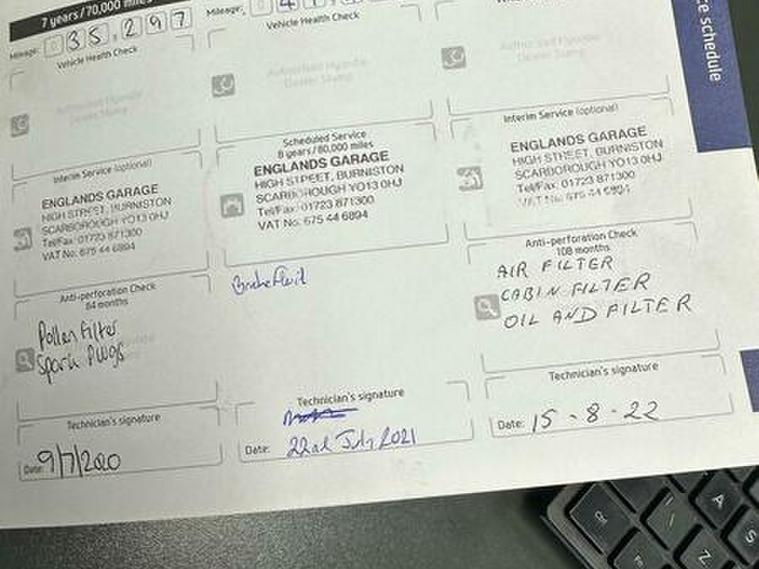 7 years/70,000 miles
Mileage: 35,297
Vehicle Health Check
Authorised Hyundai
Dealer Stamp
Interim Service (optional)
ENGLANDS GARAGE
HIGH STREET, BURNISTON
SCARBOROUGH YO13 0HJ
Tel/Fax: 01723 871300
VAT No: 675 44 6894
Anti-perforation Check
84 months
Pollen Filter
Spark Plugs
Technician's signature
Date: 9/7/2020
Mileage:
Vehicle Health Check
Authorised Hyundai
Dealer Stamp
Scheduled Service
8 years/80,000 miles
ENGLANDS GARAGE
HIGH STREET, BURNISTON
SCARBOROUGH YO13 0HJ
Tel/Fax: 01723 871300
VAT No: 675 44 6894
Brake Fluid
Technician's signature
Date: 22nd July 2021
Authorised Hyundai
Dealer Stamp
Interim Service (optional)
ENGLANDS GARAGE
HIGH STREET, BURNISTON
SCARBOROUGH YO13 0HJ
Tel/Fax: 01723 871300
VAT No: 675 44 6894
Anti-perforation Check
108 months
AIR FILTER
CABIN FILTER
OIL AND FILTER
Technician's signature
Date: 15-8-22
ce schedule
Ctrl
Fn
A
S
Z